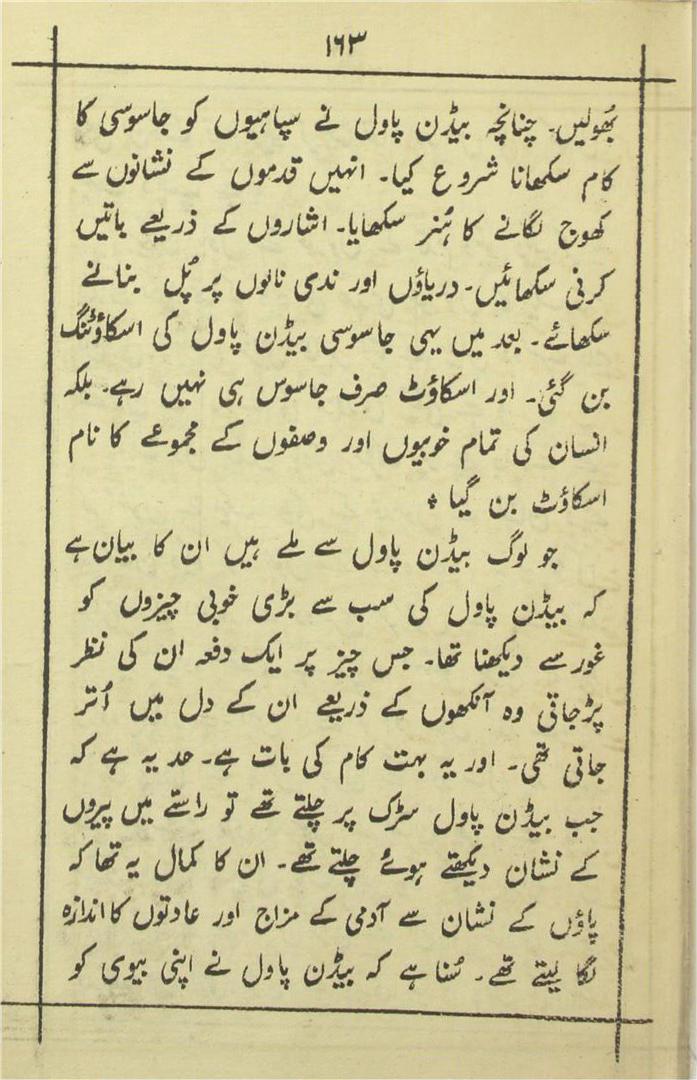 ۱۶۳
بھولیں۔ چنانچہ بیڈن پاول نے سپاہیوں کو جاسوسی کا
کام سکھانا شروع کیا۔ انہیں قدموں کے نشانوں سے
کھوج لگانے کا ہُنر سکھایا۔ اشاروں کے ذریعے باتیں
کرنی سکھائیں۔ دریاؤں اور ندی نالوں پر پُل بنانے
سکھائے۔ بعد میں یہی جاسوسی بیڈن پاول کی اسکاؤٹنگ
بن گئی۔ اور اسکاؤٹ صرف جاسوس ہی نہیں رہے۔ بلکہ
انسان کی تمام خوبیوں اور وصفوں کے مجموعے کا نام
اسکاؤٹ بن گیا ٭
جو لوگ بیڈن پاول سے ملے ہیں ان کا بیان ہے
کہ بیڈن پاول کی سب سے بڑی خوبی چیزوں کو
غور سے دیکھنا تھا۔ جس چیز پر ایک دفعہ ان کی نظر
پڑجاتی وہ آنکھوں کے ذریعے ان کے دل میں اُتر
جاتی تھی۔ اور یہ بہت کام کی بات ہے۔ حد یہ ہے کہ
جب بیڈن پاول سڑک پر چلتے تھے تو راستے میں پیروں
کے نشان دیکھتے ہوئے چلتے تھے۔ ان کا کمال یہ تھا کہ
پاؤں کے نشان سے آدمی کے مزاج اور عادتوں کا اندازہ
لگا لیتے تھے۔ سُنا ہے کہ بیڈن پاول نے اپنی بیوی کو